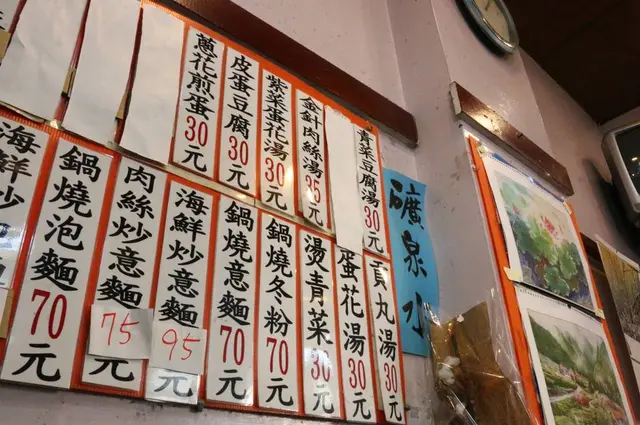 礦泉水
青菜豆腐湯30元
金針肉絲湯35元
紫菜蛋花湯30元
皮蛋豆腐30元
蔥花煎蛋30元
貢丸湯30元
蛋花湯30元
燙青菜30元
鍋燒冬粉70元
鍋燒意麵70元
海鮮炒意麵95元
肉絲炒意麵75元
鍋燒泡麵70元
海鮮炒